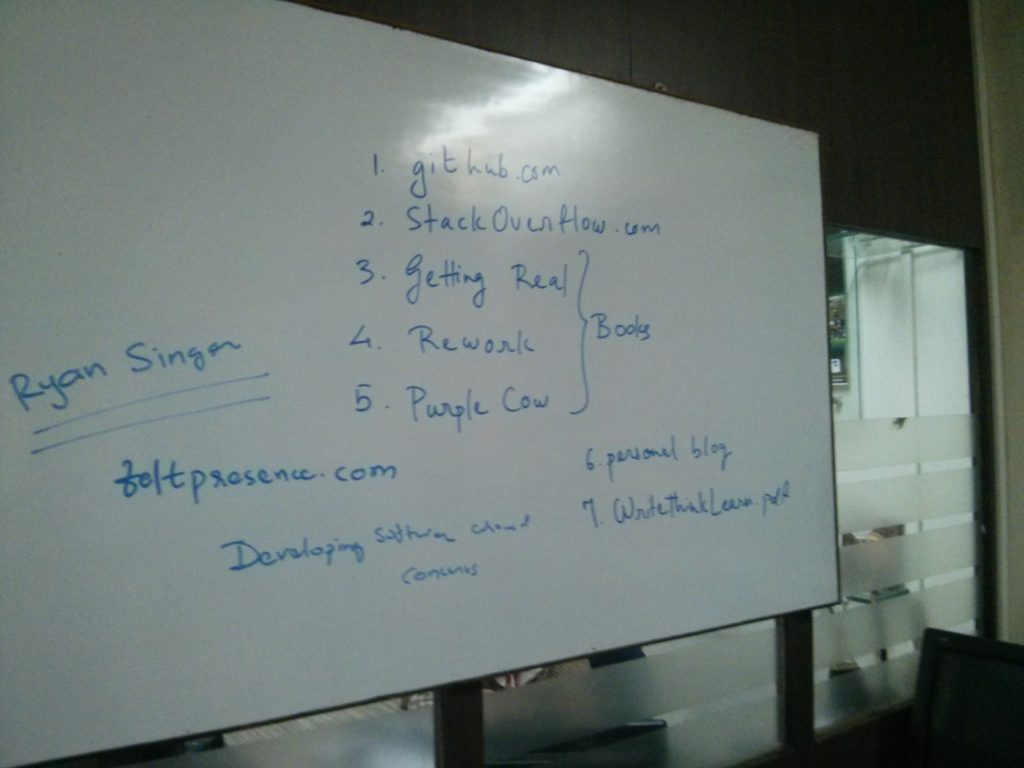 1. github.com
2. StackOverflow.com
3. Getting Real
4. Rework
5. Purple Cow
Books
Ryan Singer
feltpresence.com
6. personal blog
7. WriteThinkLearn.pdf
Developing software around
concerns